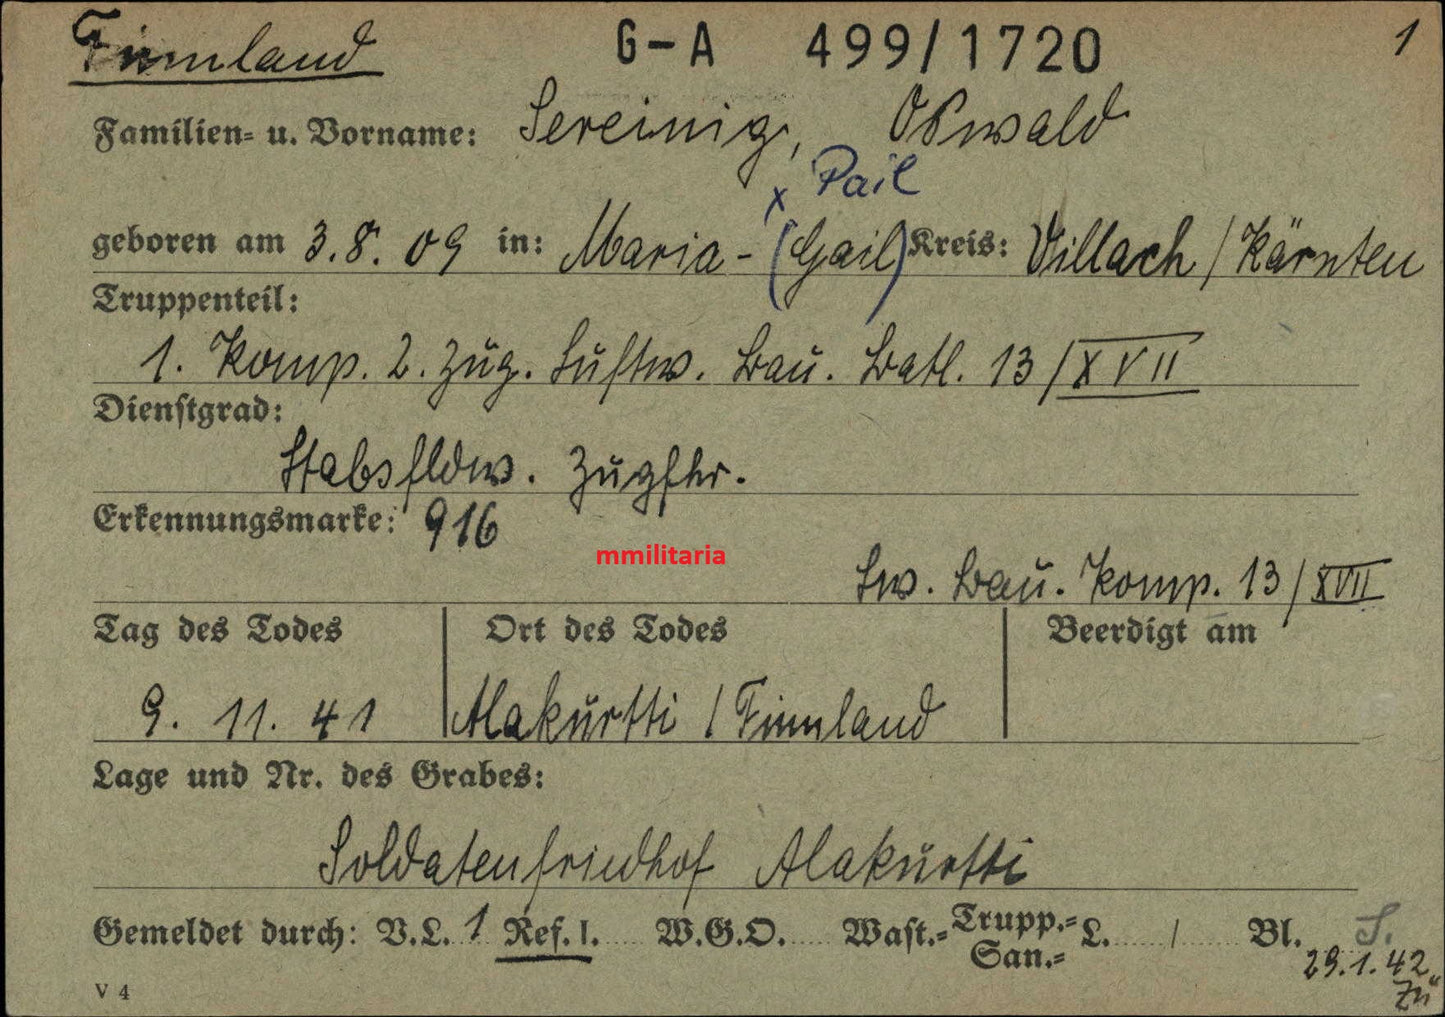 Finnland G-A 499/1720 1
Familien- u. Vorname: Sereinig, Oswald
x Pail
geboren am 3.8.09 in: Maria-(Gail) Kreis: Villach / Kärnten
Truppenteil:
1. Komp. 2. Zug. Luftw. Bau. Batl. 13/XVII
Dienstgrad:
Stabsfldw. Zugfhr.
Erkennungsmarke: 916
mmilitaria
Lw. Bau. Komp. 13/XVII
Tag des Todes Ort des Todes Beerdigt am
9. 11. 41 Alakurtti / Finnland
Lage und Nr. des Grabes:
Soldatenfriedhof Alakurtti
Gemeldet durch: V.L. 1 Ref. I. W.G.O. Wast.- Trupp.- San.- L. / Bl. S.
29.1.42
V 4